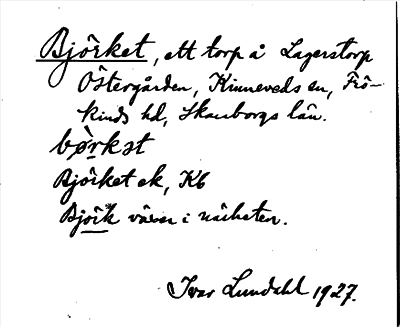 Björket, ett torp å Lagerstorp
Östergården, Kinneveds sn, Frö-
kinds hd, Skaraborgs län.
bø̀rkət
Björket ek, Kb
Björk växer i närheten.
Ivar Lundahl 1927.